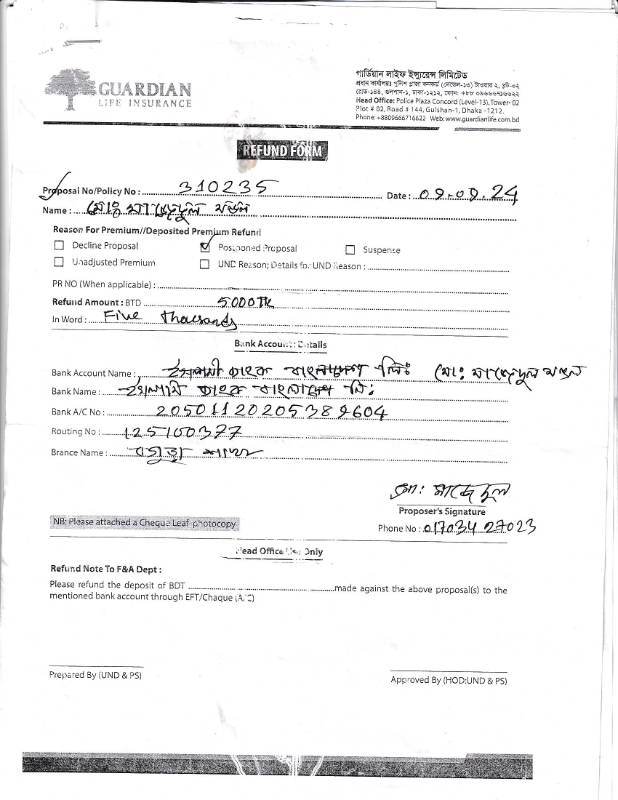 GUARDIAN
LIFE INSURANCE
গার্ডিয়ান লাইফ ইন্স্যুরেন্স লিমিটেড
প্রধান কার্যালয়ঃ পুলিশ প্লাজা কনকর্ড (লেভেল-১৩) টাওয়ার ২, প্লট-০২
রোড-১৪৪, গুলশান-১, ঢাকা-১২১২, ফোন: +৮৮ ০৯৬৬৬৭১৬৬২২
Head Office: Police Plaza Concord (Level-13), Tower- 02
Plot # 02, Road # 144, Gulshan-1, Dhaka -1212.
Phone: +8809666716622 Web: www.guardianlife.com.bd
REFUND FORM
Proposal No/Policy No : 310235 Date : 09.09.24
Name : মোঃ মাজেদুল মন্ডল
Reason For Premium//Deposited Premium Refund
Decline Proposal Postponed Proposal Suspense
Unadjusted Premium UND Reason; Details for UND Reason :
PR NO (When applicable) :
Refund Amount : BTD 5000TK
In Word : Five thousands
Bank Account Details
Bank Account Name : ইসলামী ব্যাংক বাংলাদেশ লিঃ মোঃ মাজেদুল মন্ডল
Bank Name : ইসলামি ব্যাংক বাংলাদেশ লিঃ
Bank A/C No : 20501120205389604
Routing No : 125100377
Brance Name : বগুড়া শাখা
মো: মাজেদুল
Proposer's Signature
NB: Please attached a Cheque Leaf-photocopy
Phone No : 01703427023
Head Office Use Only
Refund Note To F&A Dept :
Please refund the deposit of BDT made against the above proposal(s) to the
mentioned bank account through EFT/Chaque (A/C)
Prepared By (UND & PS)
Approved By (HOD:UND & PS)